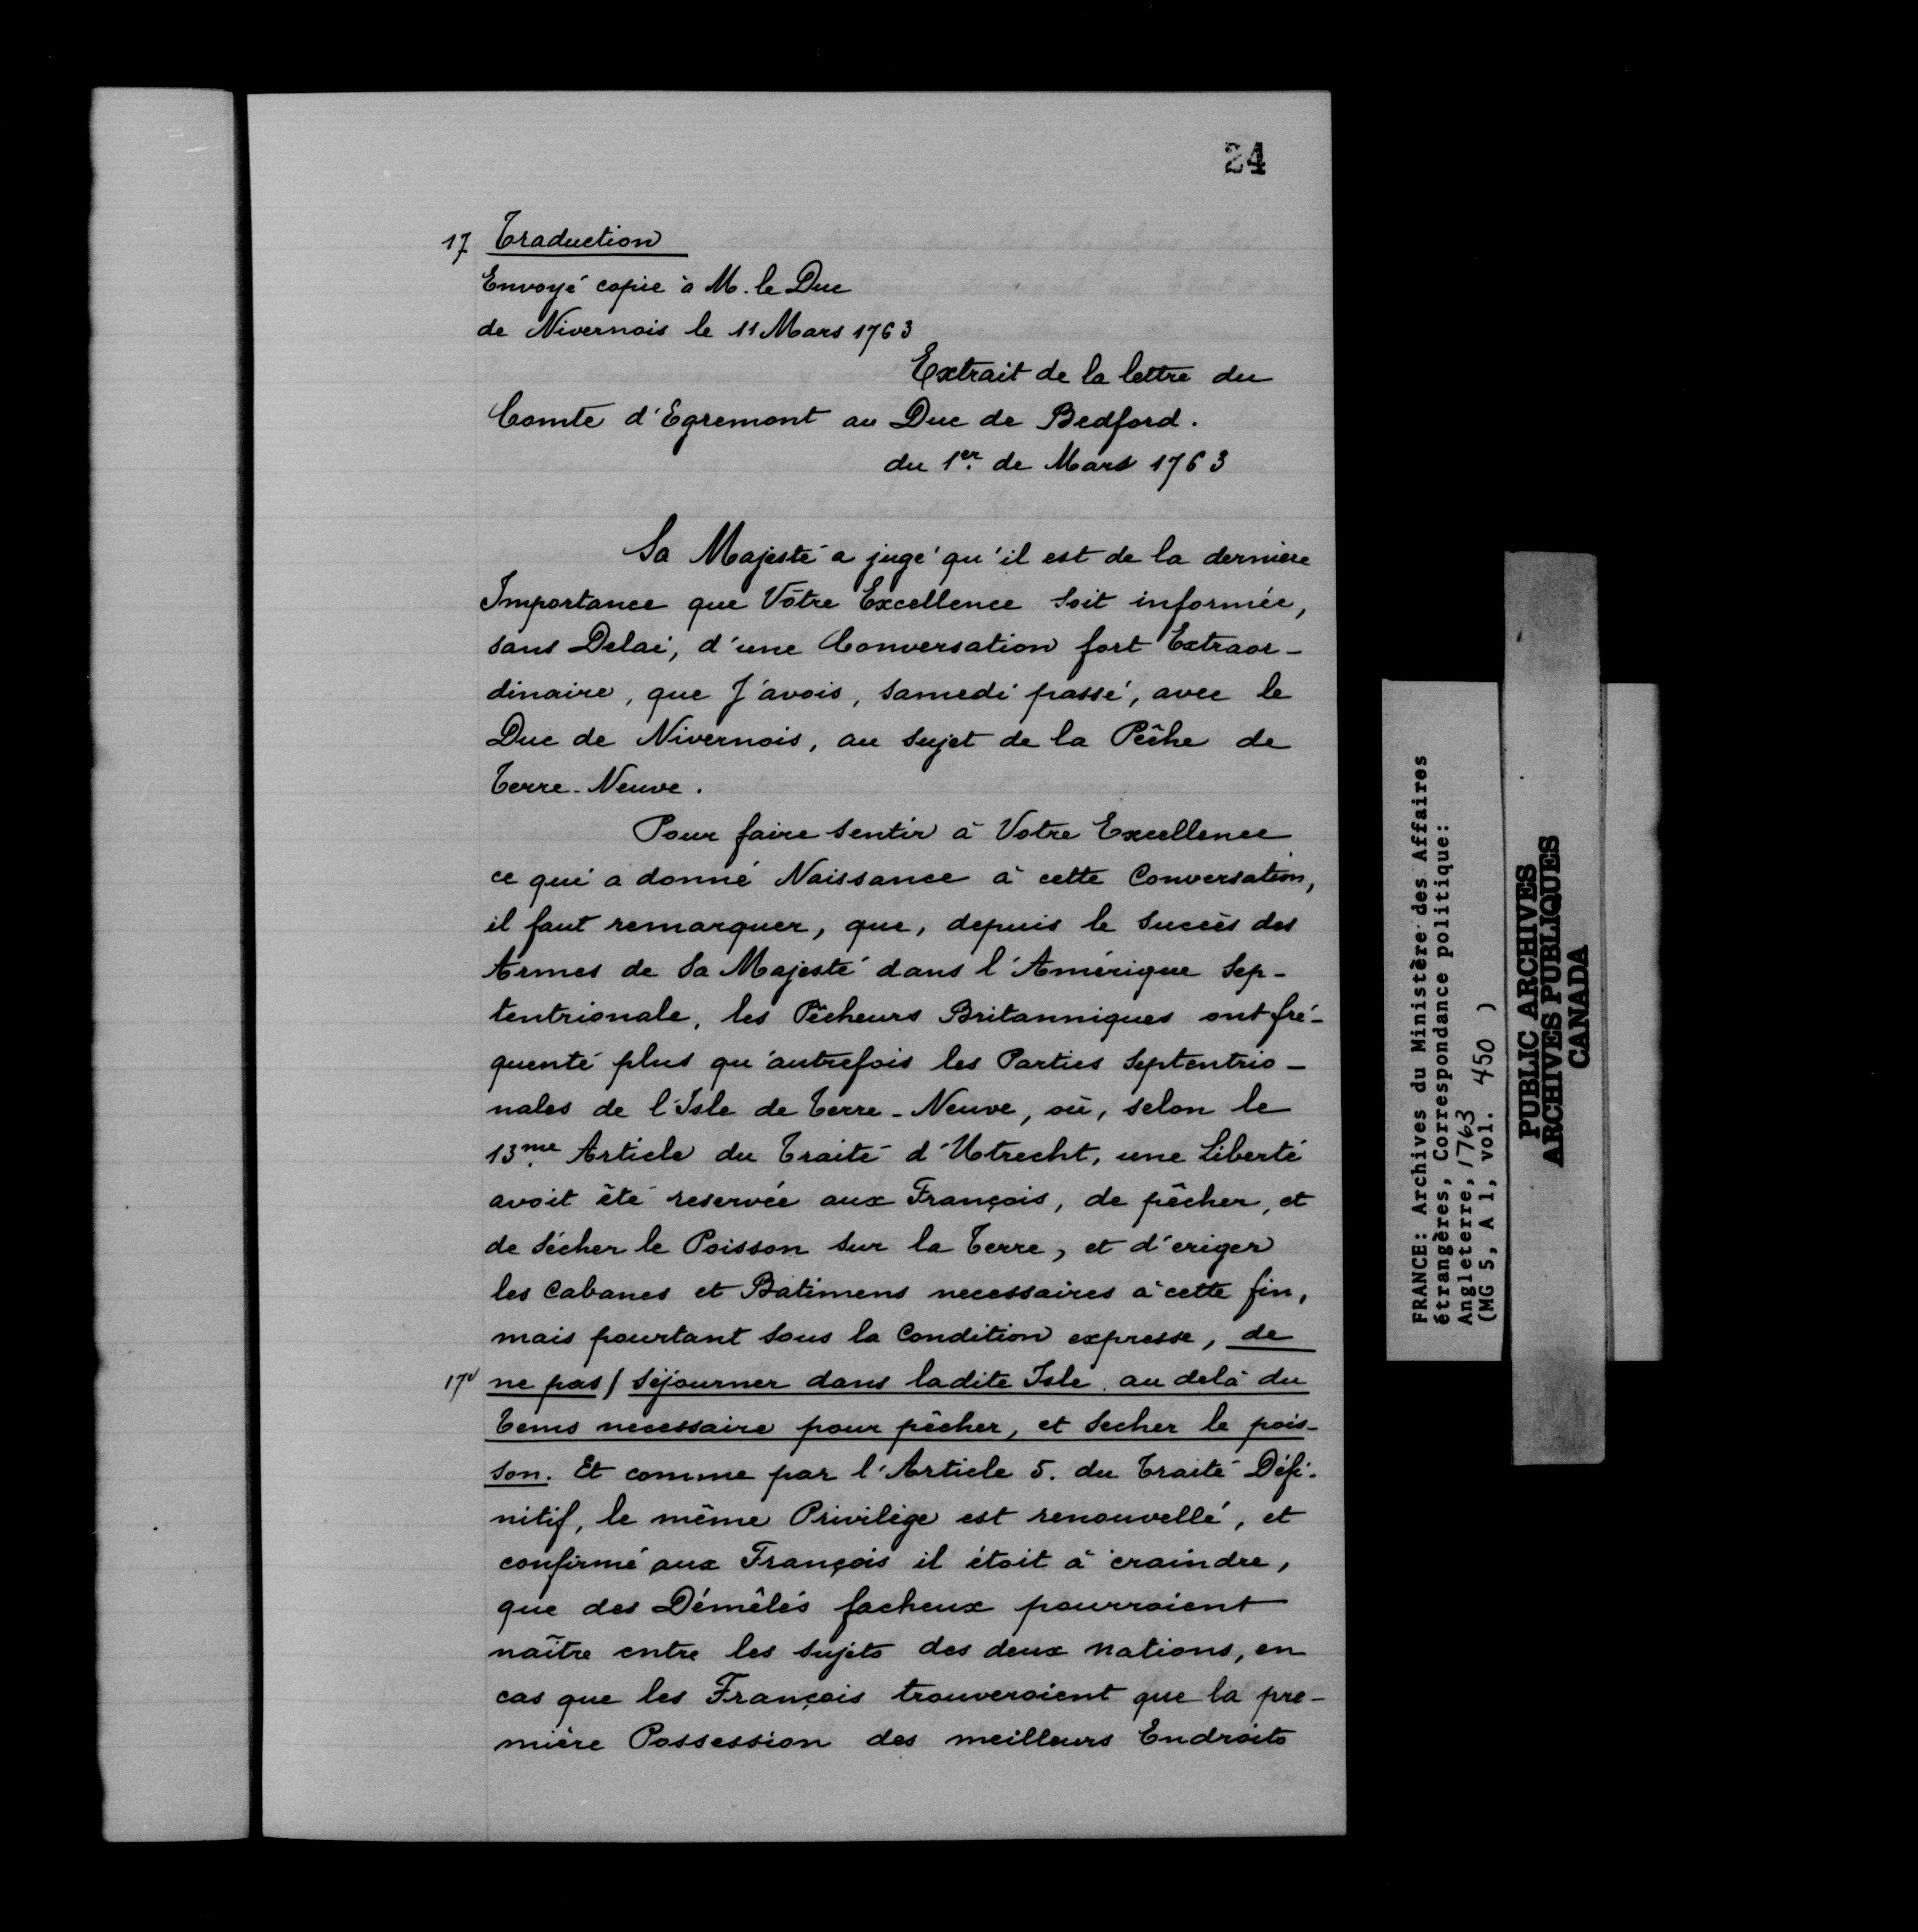 24
17 Traduction
Envoyé copie à M. le Duc
de Nivernois le 11 Mars 1763
Extrait de la lettre du
Comte d'Egremont au Duc de Bedford.
du 1er. de Mars 1763
Sa Majesté a jugé qu'il est de la derniere
Importance que Vôtre Excellence soit informée,
sans Delai, d'une Conversation fort Extraor-
dinaire, que J'avois, samedi passé, avec le
Duc de Nivernois, au sujet de la Pêche de
Terre-Neuve.
Pour faire sentir à Votre Excellence
ce qui a donné Naissance à cette Conversation,
il faut remarquer, que, depuis le succès des
Armes de Sa Majesté dans l'Amérique Sep-
tentrionale, les Pêcheurs Britanniques ont fré-
quenté plus qu'autrefois les Parties Septentrio-
nales de l'Isle de Terre-Neuve, où, selon le
13me. Article du Traité d'Utrecht, une Liberté
avoit été reservée aux François, de pêcher, et
de sécher le Poisson sur la Terre, et d'eriger
les Cabanes et Batimens necessaires à cette fin,
mais pourtant sous la Condition expresse, de
17v ne pas / séjourner dans ladite Isle au delà du
Tems necessaire pour pêcher, et secher le pois-
son. Et comme par l'Article 5. du Traité Défi-
nitif, le même Privilège est renouvellé, et
confirmé aux François il étoit à craindre,
que des Démêlés facheux pourroient
naître entre les sujets des deux nations, en
cas que les François trouveroient que la pre-
mière Possession des meilleurs Endroits
FRANCE: Archives du Ministère des Affaires
étrangères, Correspondance politique:
Angleterre, 1763
(MG 5, A 1, vol. 450 )
PUBLIC ARCHIVES
ARCHIVES PUBLIQUES
CANADA